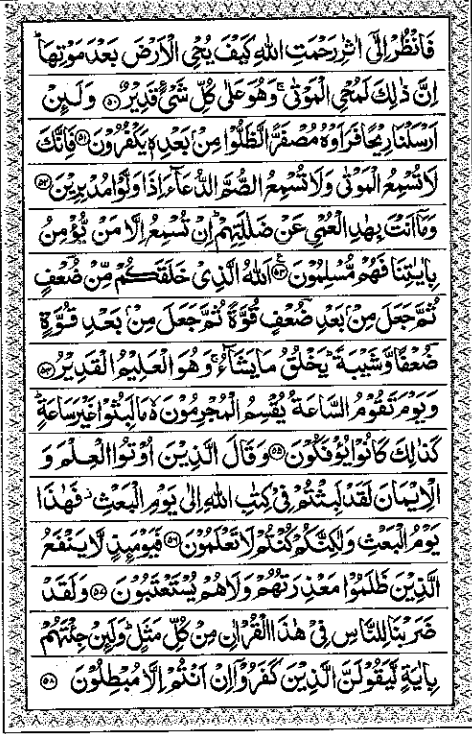 فَانْظُرْ اِلٰۤى اٰثٰرِ رَحْمَتِ اللّٰهِ كَيْفَ يُحْيِ الْاَرْضَ بَعْدَ مَوْتِهَاؕ
اِنَّ ذٰلِكَ لَمُحْيِ الْمَوْتٰىۚ وَهُوَ عَلٰى كُلِّ شَىْءٍ قَدِيْرٌ ﴿۵۰﴾ وَلَىِٕنْ
اَرْسَلْنَا رِيْحًا فَرَاَوْهُ مُصْفَرًّا لَّظَلُّوْا مِنْۢ بَعْدِهٖ يَكْفُرُوْنَ ﴿۵۱﴾ فَاِنَّكَ
لَا تُسْمِعُ الْمَوْتٰى وَلَا تُسْمِعُ الصُّمَّ الدُّعَآءَ اِذَا وَلَّوْا مُدْبِرِيْنَ ﴿۵۲﴾
وَمَاۤ اَنْتَ بِهٰدِ الْعُمْىِ عَنْ ضَلٰلَتِهِمْؕ اِنْ تُسْمِعُ اِلَّا مَنْ يُّؤْمِنُ
بِاٰيٰتِنَا فَهُمْ مُّسْلِمُوْنَ ﴿۵۳﴾ اَللّٰهُ الَّذِىْ خَلَقَكُمْ مِّنْ ضُعْفٍ
ثُمَّ جَعَلَ مِنْۢ بَعْدِ ضُعْفٍ قُوَّةً ثُمَّ جَعَلَ مِنْۢ بَعْدِ قُوَّةٍ
ضُعْفًا وَّشَيْبَةًؕ يَخْلُقُ مَا يَشَآءُۚ وَهُوَ الْعَلِيْمُ الْقَدِيْرُ ﴿۵۴﴾
وَيَوْمَ تَقُوْمُ السَّاعَةُ يُقْسِمُ الْمُجْرِمُوْنَ ۙ۬ مَا لَبِثُوْا غَيْرَ سَاعَةٍؕ
كَذٰلِكَ كَانُوْا يُؤْفَكُوْنَ ﴿۵۵﴾ وَقَالَ الَّذِيْنَ اُوْتُوا الْعِلْمَ وَ
الْاِيْمَانَ لَقَدْ لَبِثْتُمْ فِىْ كِتٰبِ اللّٰهِ اِلٰى يَوْمِ الْبَعْثِؗ فَهٰذَا
يَوْمُ الْبَعْثِ وَلٰكِنَّكُمْ كُنْتُمْ لَا تَعْلَمُوْنَ ﴿۵۶﴾ فَيَوْمَىِٕذٍ لَّا يَنْفَعُ
الَّذِيْنَ ظَلَمُوْا مَعْذِرَتُهُمْ وَلَا هُمْ يُسْتَعْتَبُوْنَ ﴿۵۷﴾ وَلَقَدْ
ضَرَبْنَا لِلنَّاسِ فِىْ هٰذَا الْقُرْاٰنِ مِنْ كُلِّ مَثَلٍؕ وَلَىِٕنْ جِئْتَهُمْ
بِاٰيَةٍ لَّيَقُوْلَنَّ الَّذِيْنَ كَفَرُوْۤا اِنْ اَنْتُمْ اِلَّا مُبْطِلُوْنَ ﴿۵۸﴾